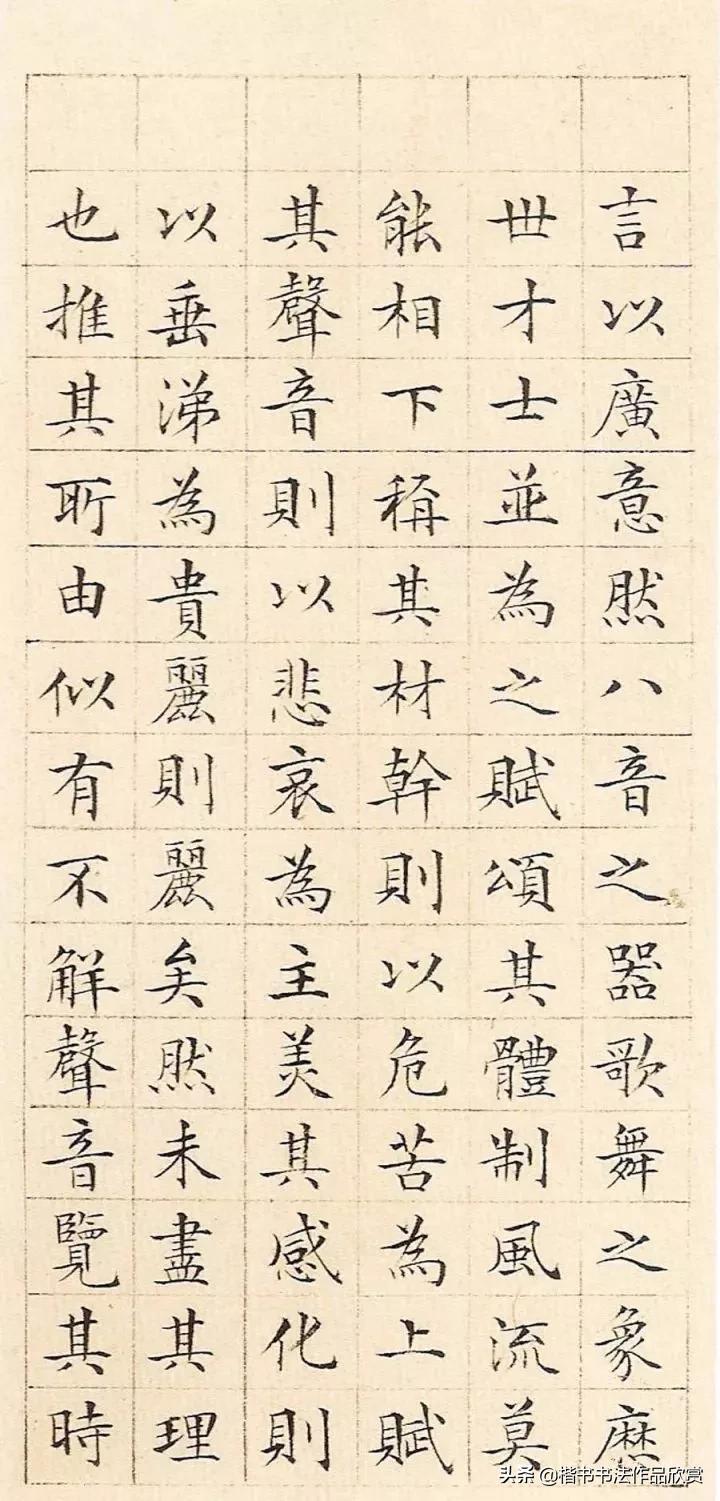 言以廣意然八音之器歌舞之象歷
世才士並為之賦頌其體制風流莫
能相下稱其材幹則以危苦為上賦
其聲音則以悲哀為主美其感化則
以垂涕為貴麗則麗矣然未盡其理
也推其所由似有不解聲音覽其時
头条 @楷书书法作品欣赏